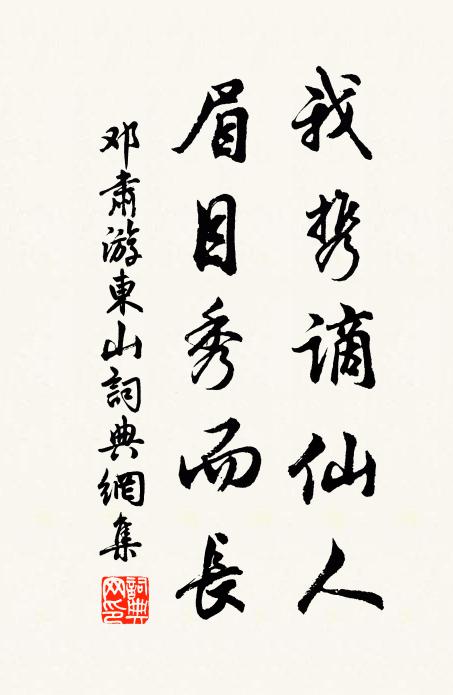 我携謫仙人
眉目秀而長
邓肅游東山詞典網集
詞典网印